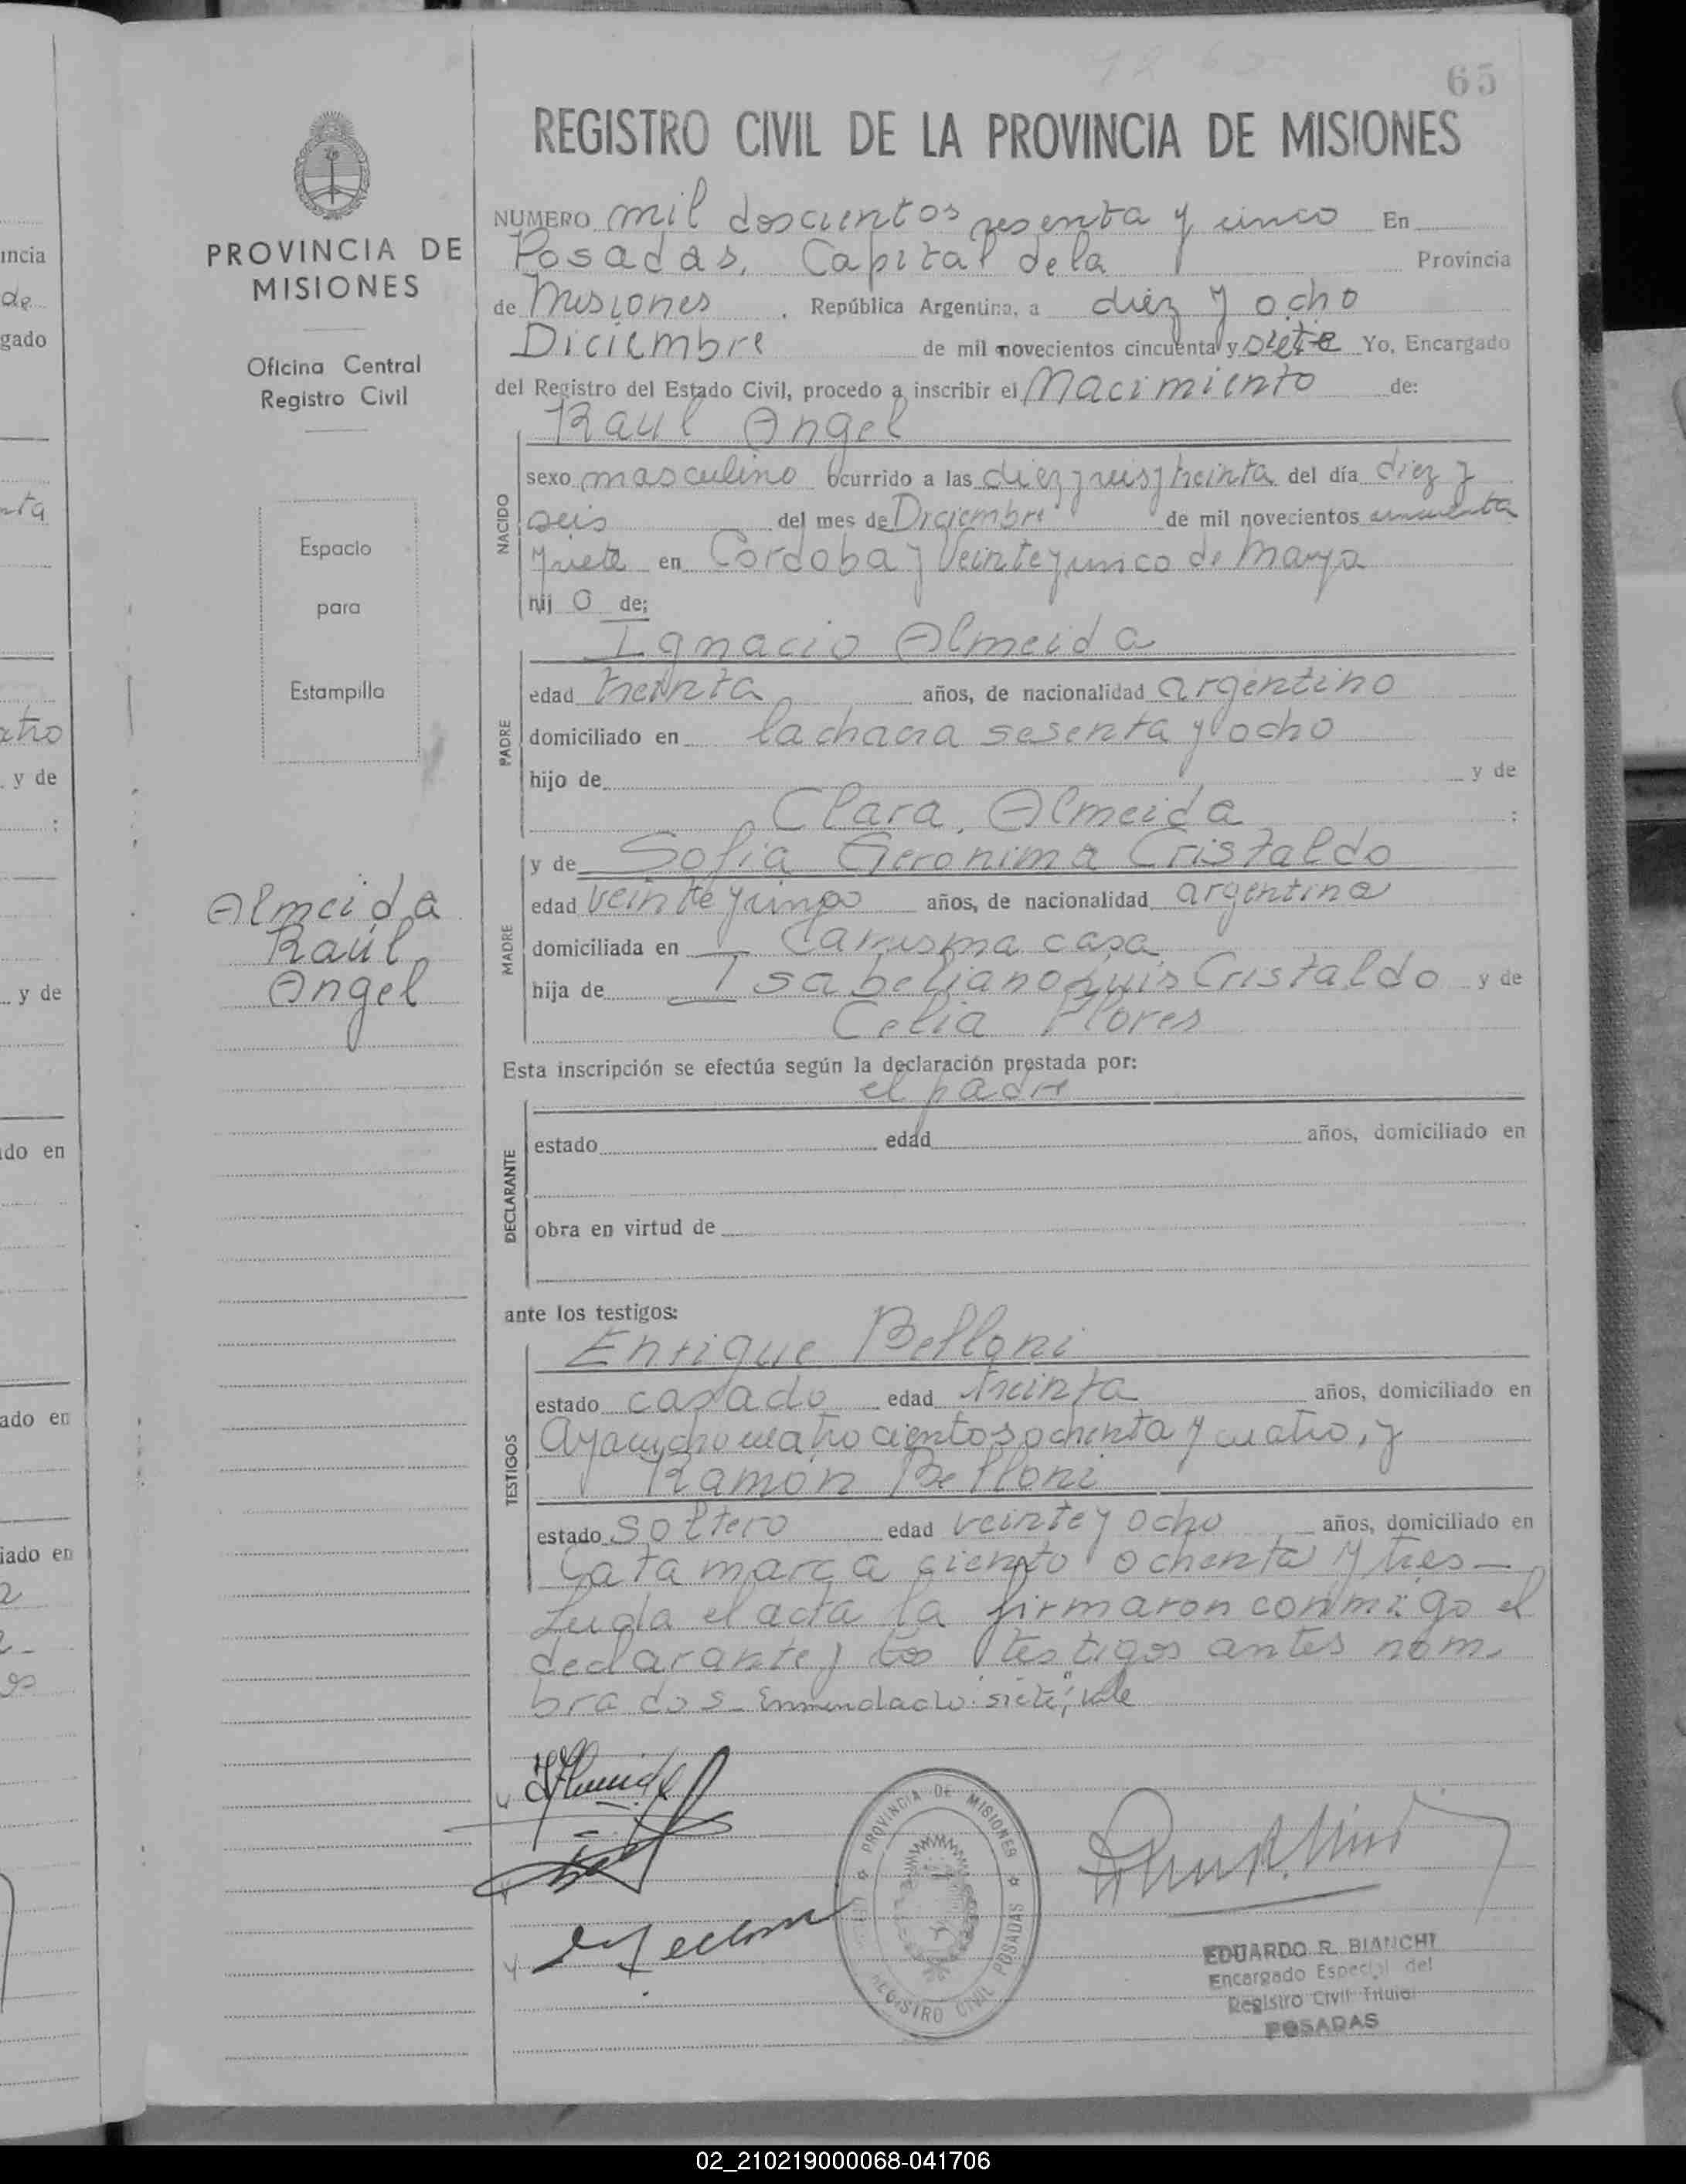 65
REGISTRO CIVIL DE LA PROVINCIA DE MISIONES
PROVINCIA DE
MISIONES
Oficina Central
Registro Civil
Espacio
para
Estampilla
Almeida
Raúl
Angel
NUMERO mil doscientos sesenta y cinco En
Posadas, Capital de la Provincia
de Misiones, República Argentina, a diez y ocho
Diciembre de mil novecientos cincuenta y siete Yo, Encargado
del Registro del Estado Civil, procedo a inscribir el Nacimiento de:
Raul Angel
NACIDO
sexo masculino ocurrido a las diez y seis y treinta del día diez y
seis del mes de Diciembre de mil novecientos cincuenta
y siete en Cordoba y Veinte y cinco de Mayo
hij o de:
PADRE
Ignacio Almeida
edad treinta años, de nacionalidad argentino
domiciliado en la chacra sesenta y ocho
hijo de y de
Clara Almeida :
MADRE
y de Sofia Geronima Cristaldo
edad veinte y cinco años, de nacionalidad argentina
domiciliada en la misma casa
hija de Isabeliano Luis Cristaldo y de
Celia Flores
Esta inscripción se efectúa según la declaración prestada por:
el padre
DECLARANTE
estado edad años, domiciliado en
obra en virtud de
ante los testigos:
TESTIGOS
Enrique Belloni
estado casado edad treinta años, domiciliado en
Ayacucho cuatrocientos ochenta y cuatro, y
Ramón Belloni
estado soltero edad veinte y ocho años, domiciliado en
Catamarca ciento ochenta y tres -
Leida el acta la firmaron conmigo el
declarante y los testigos antes nom-
brados - Enmendado: "siete", vale
PROVINCIA DE MISIONES
REGISTRO CIVIL POSADAS
EDUARDO R. BIANCHI
Encargado Especial del
Registro Civil Titular
POSADAS
incia
de
gado
y de
y de
do en
ado en
iado en
02_210219000068-041706